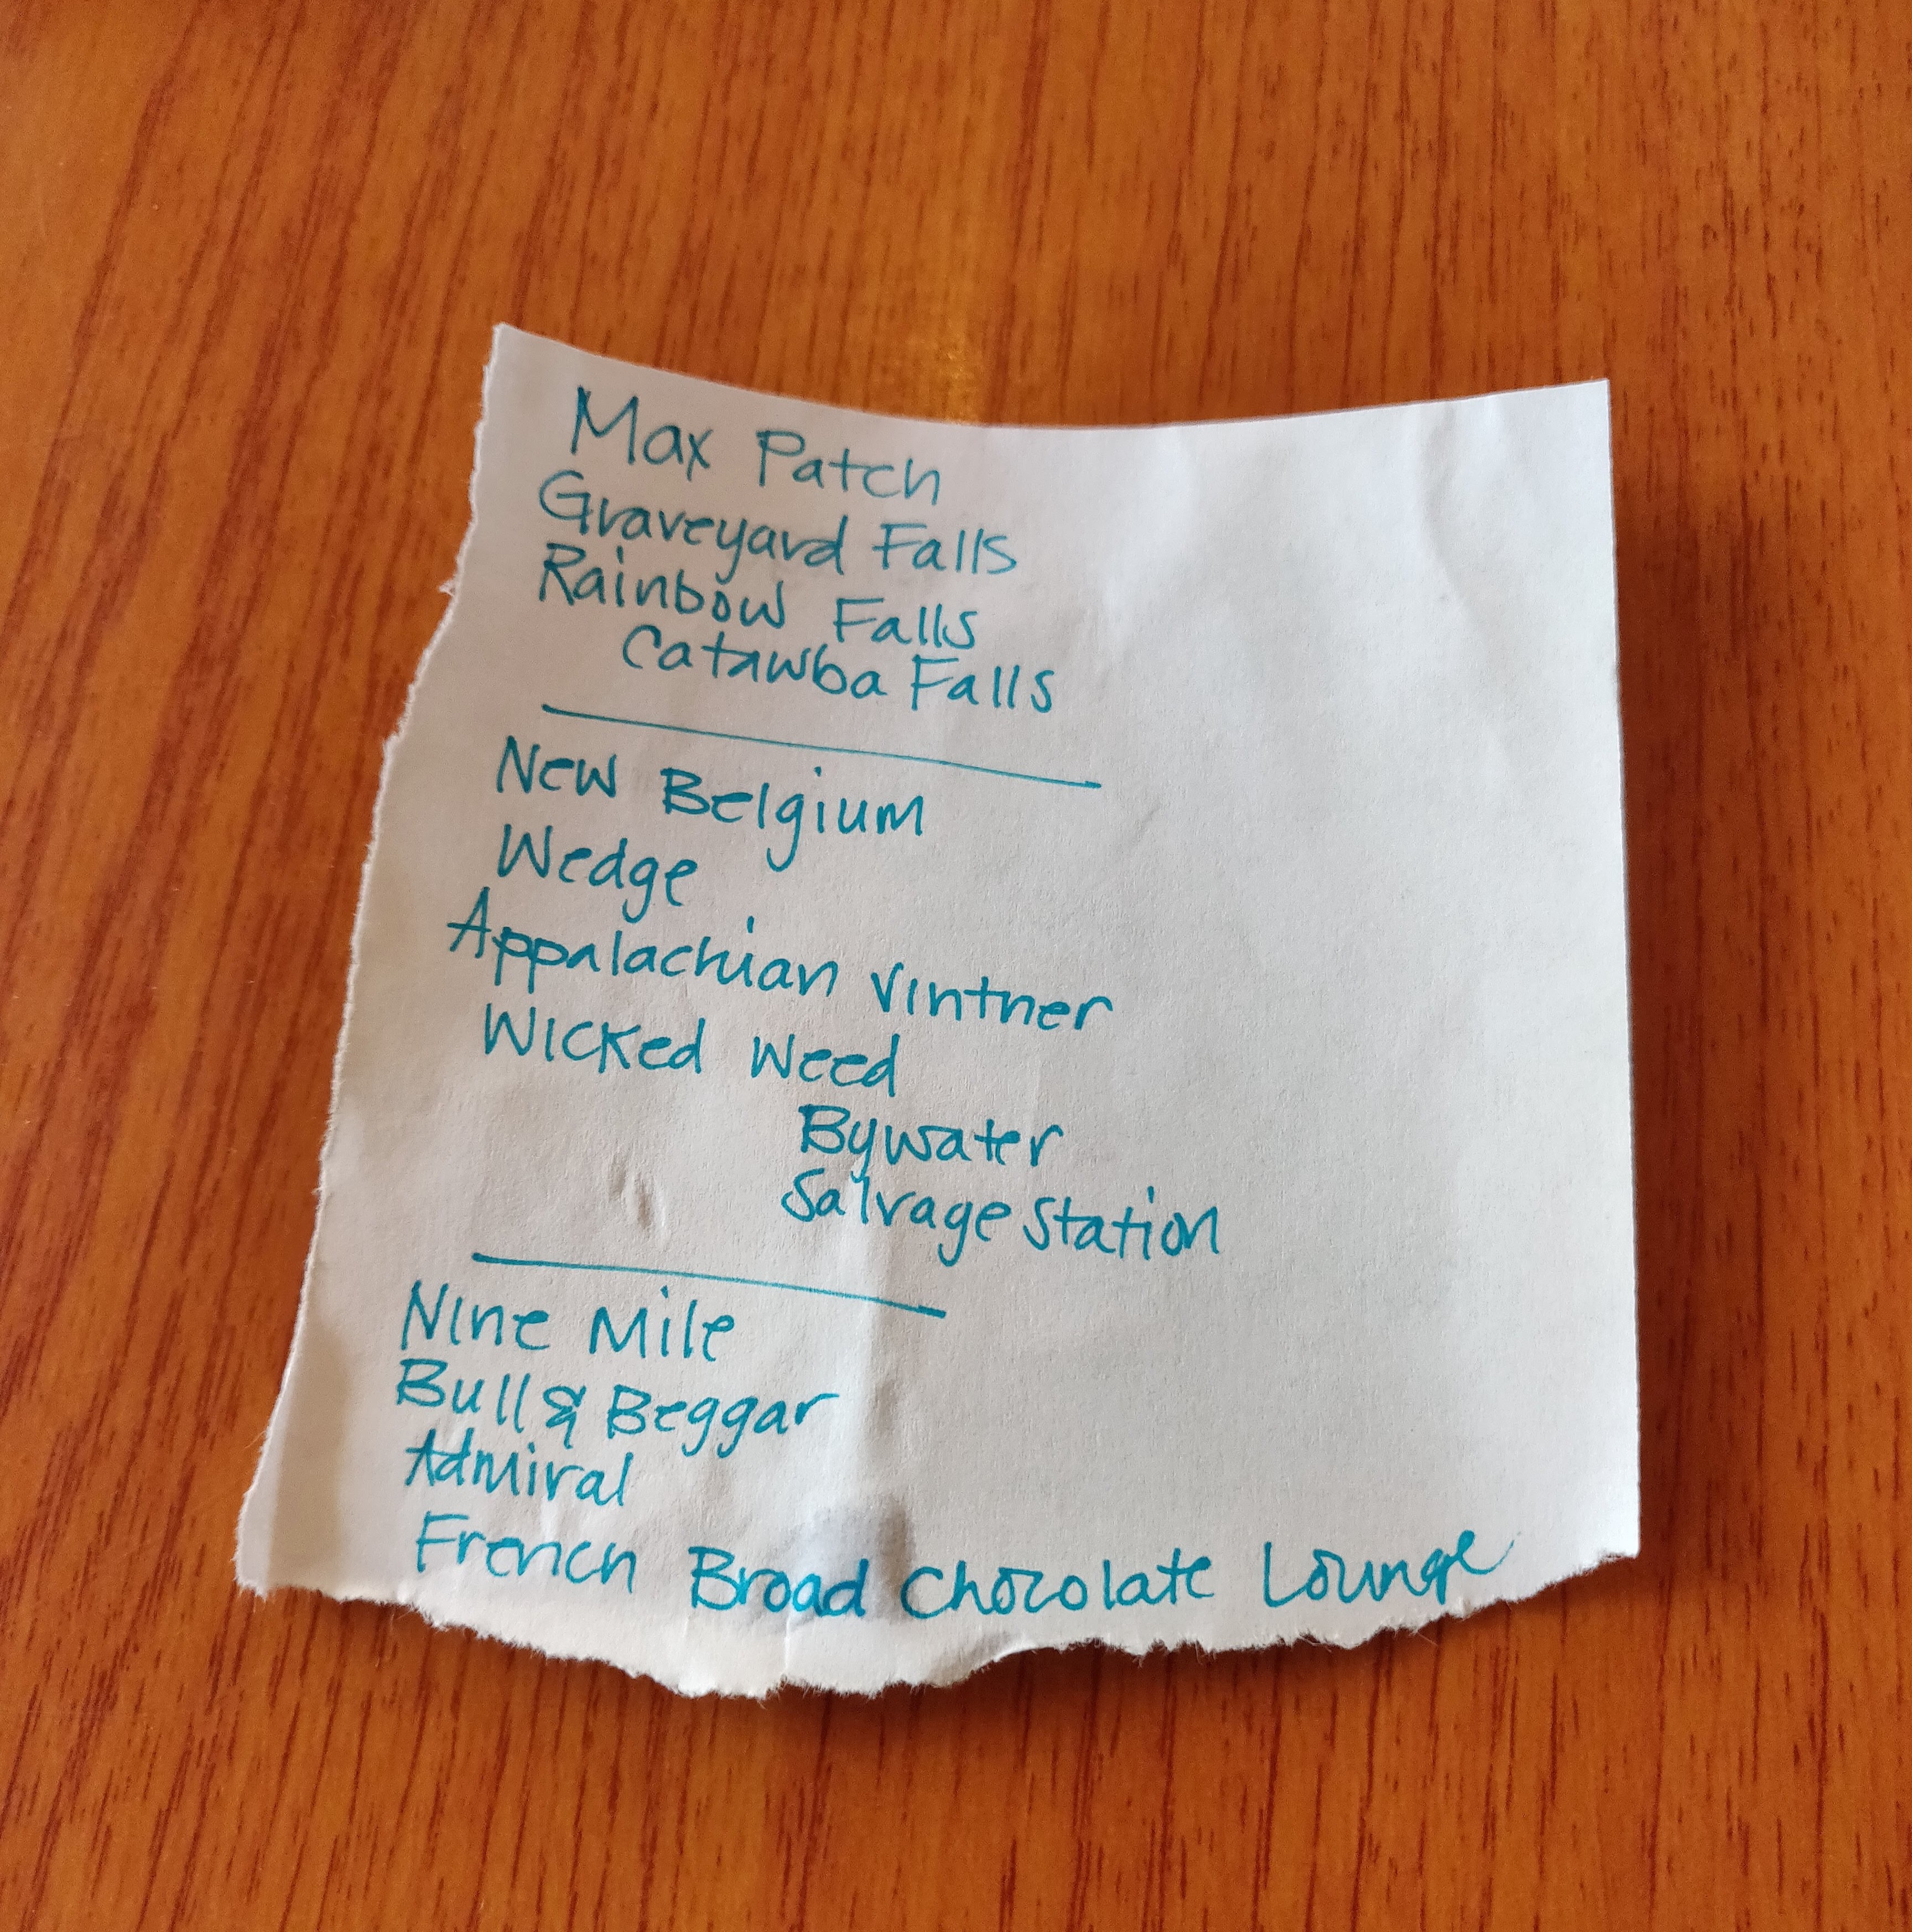 Max Patch
Graveyard Falls
Rainbow Falls
Catawba Falls
New Belgium
Wedge
Appalachian Vintner
Wicked Weed
Bywater
Salvage Station
Nine Mile
Bull & Beggar
Admiral
French Broad Chocolate Lounge